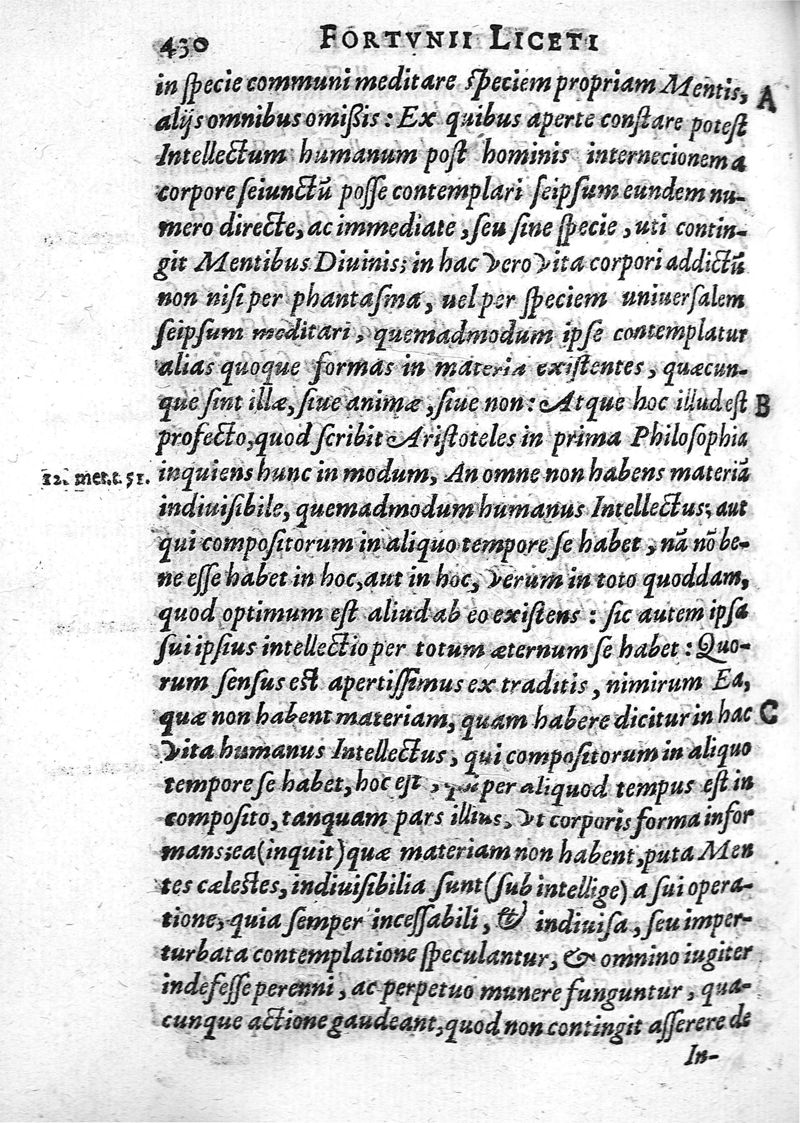 430 FORTVNII LICETI
in specie communi meditare speciem propriam Mentis, A
alijs omnibus omißis: Ex quibus aperte constare potest
Intellectum humanum post hominis internecionem a
corpore seiunctū posse contemplari seipsum eundem nu-
mero directe, ac immediate, seu sine specie, uti contin-
git Mentibus Diuinis; in hac vero vita corpori addictū
non nisi per phantasma, uel per speciem uniuersalem
seipsum meditari, quemadmodum ipse contemplatur
alias quoque formas in materia existentes, quæcun-
que sint illæ, siue animæ, siue non: Atque hoc illud est B
profecto, quod scribit Aristoteles in prima Philosophia
12. met. t. 51. inquiens hunc in modum, An omne non habens materiā
indiuisibile, quemadmodum humanus Intellectus; aut
qui compositorum in aliquo tempore se habet, nā nō be-
ne esse habet in hoc, aut in hoc, verum in toto quoddam,
quod optimum est aliud ab eo existens: sic autem ipsa
sui ipsius intellectio per totum æternum se habet: Quo-
rum sensus est apertissimus ex traditis, nimirum Ea,
quæ non habent materiam, quam habere dicitur in hac C
vita humanus Intellectus, qui compositorum in aliquo
tempore se habet, hoc est, qui per aliquod tempus est in
composito, tanquam pars illius, vt corporis forma infor
mans; ea (inquit) quæ materiam non habent, puta Men
tes cælestes, indiuisibilia sunt (sub intellige) a sui opera-
tione, quia semper incessabili, & indiuisa, seu imper-
turbata contemplatione speculantur, & omnino iugiter
indefesse perenni, ac perpetuo munere funguntur, qua-
cunque actione gaudeant, quod non contingit asserere de
In-